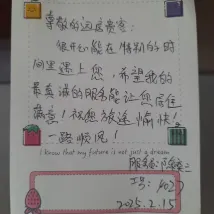 尊敬的远居贵宾:
很开心能在特别的时
间里遇上您,希望我的
最真诚的服务能让您居住
愉快!祝您旅途愉快!
一路顺风!
I know that my future is not just a dream
服务员:
工号:
2025.2.15